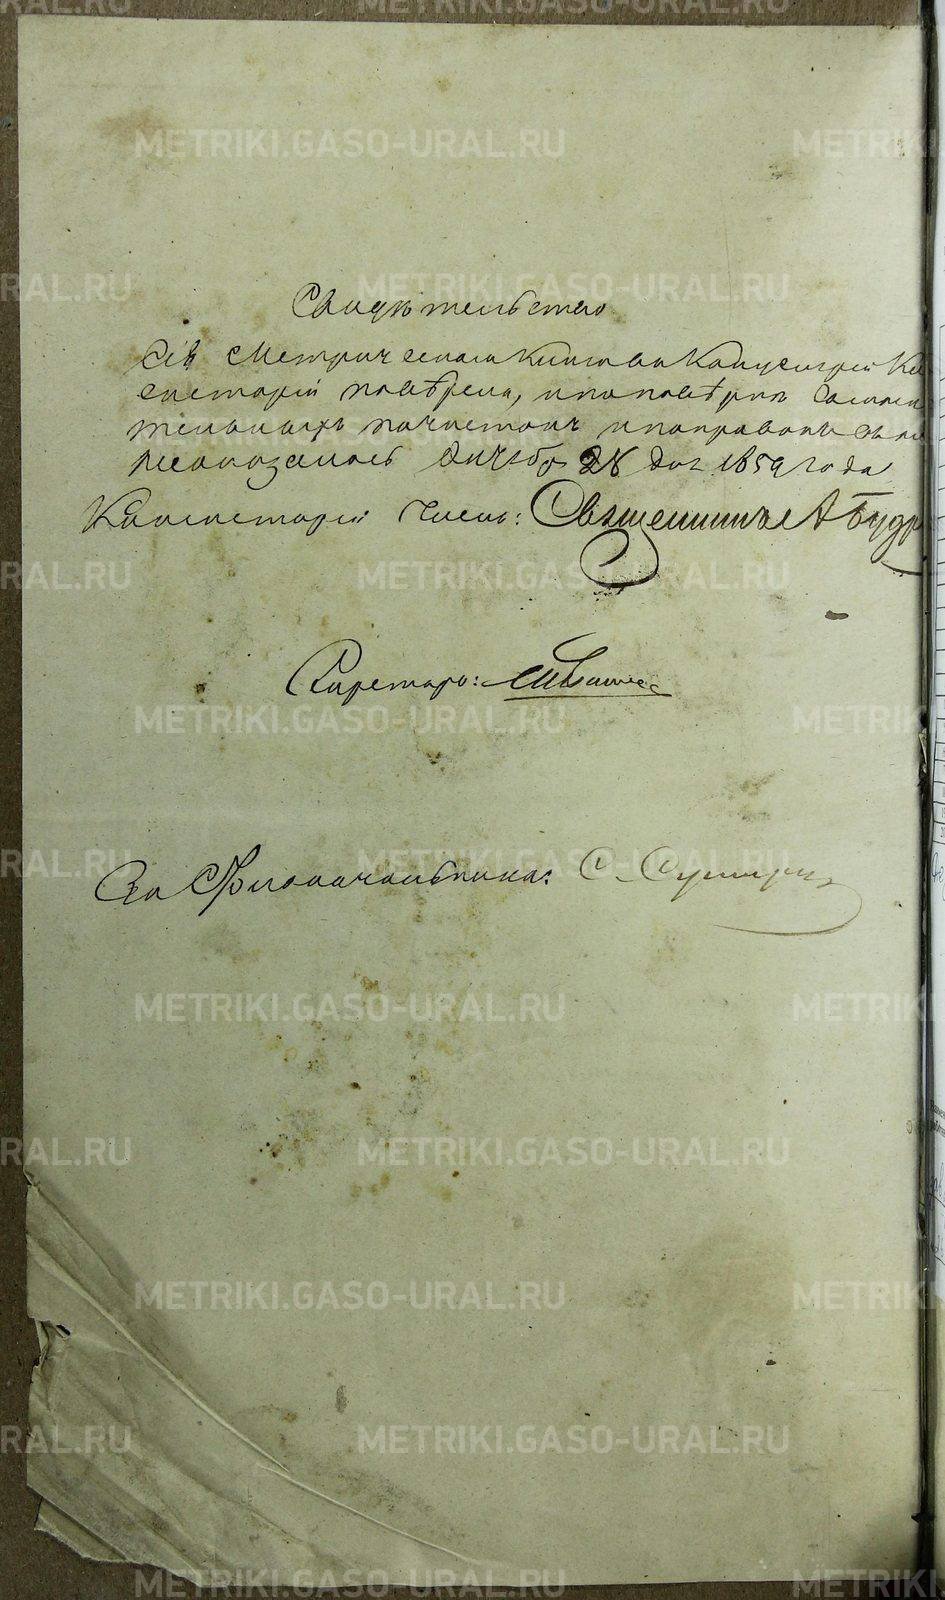 Свидѣтельство
Сія Метрическая Книга въ Канцеляріи Ко
систоріи повѣрена, и по повѣркѣ сомни
тельныхъ почистокъ и поправокъ
не оказалось Дикабр 28 дня 1859 года
Консисторіи Членъ: Священникъ А Будр
Секретарь:
За Столоначальника: С.
METRIKI.GASO-URAL.RU